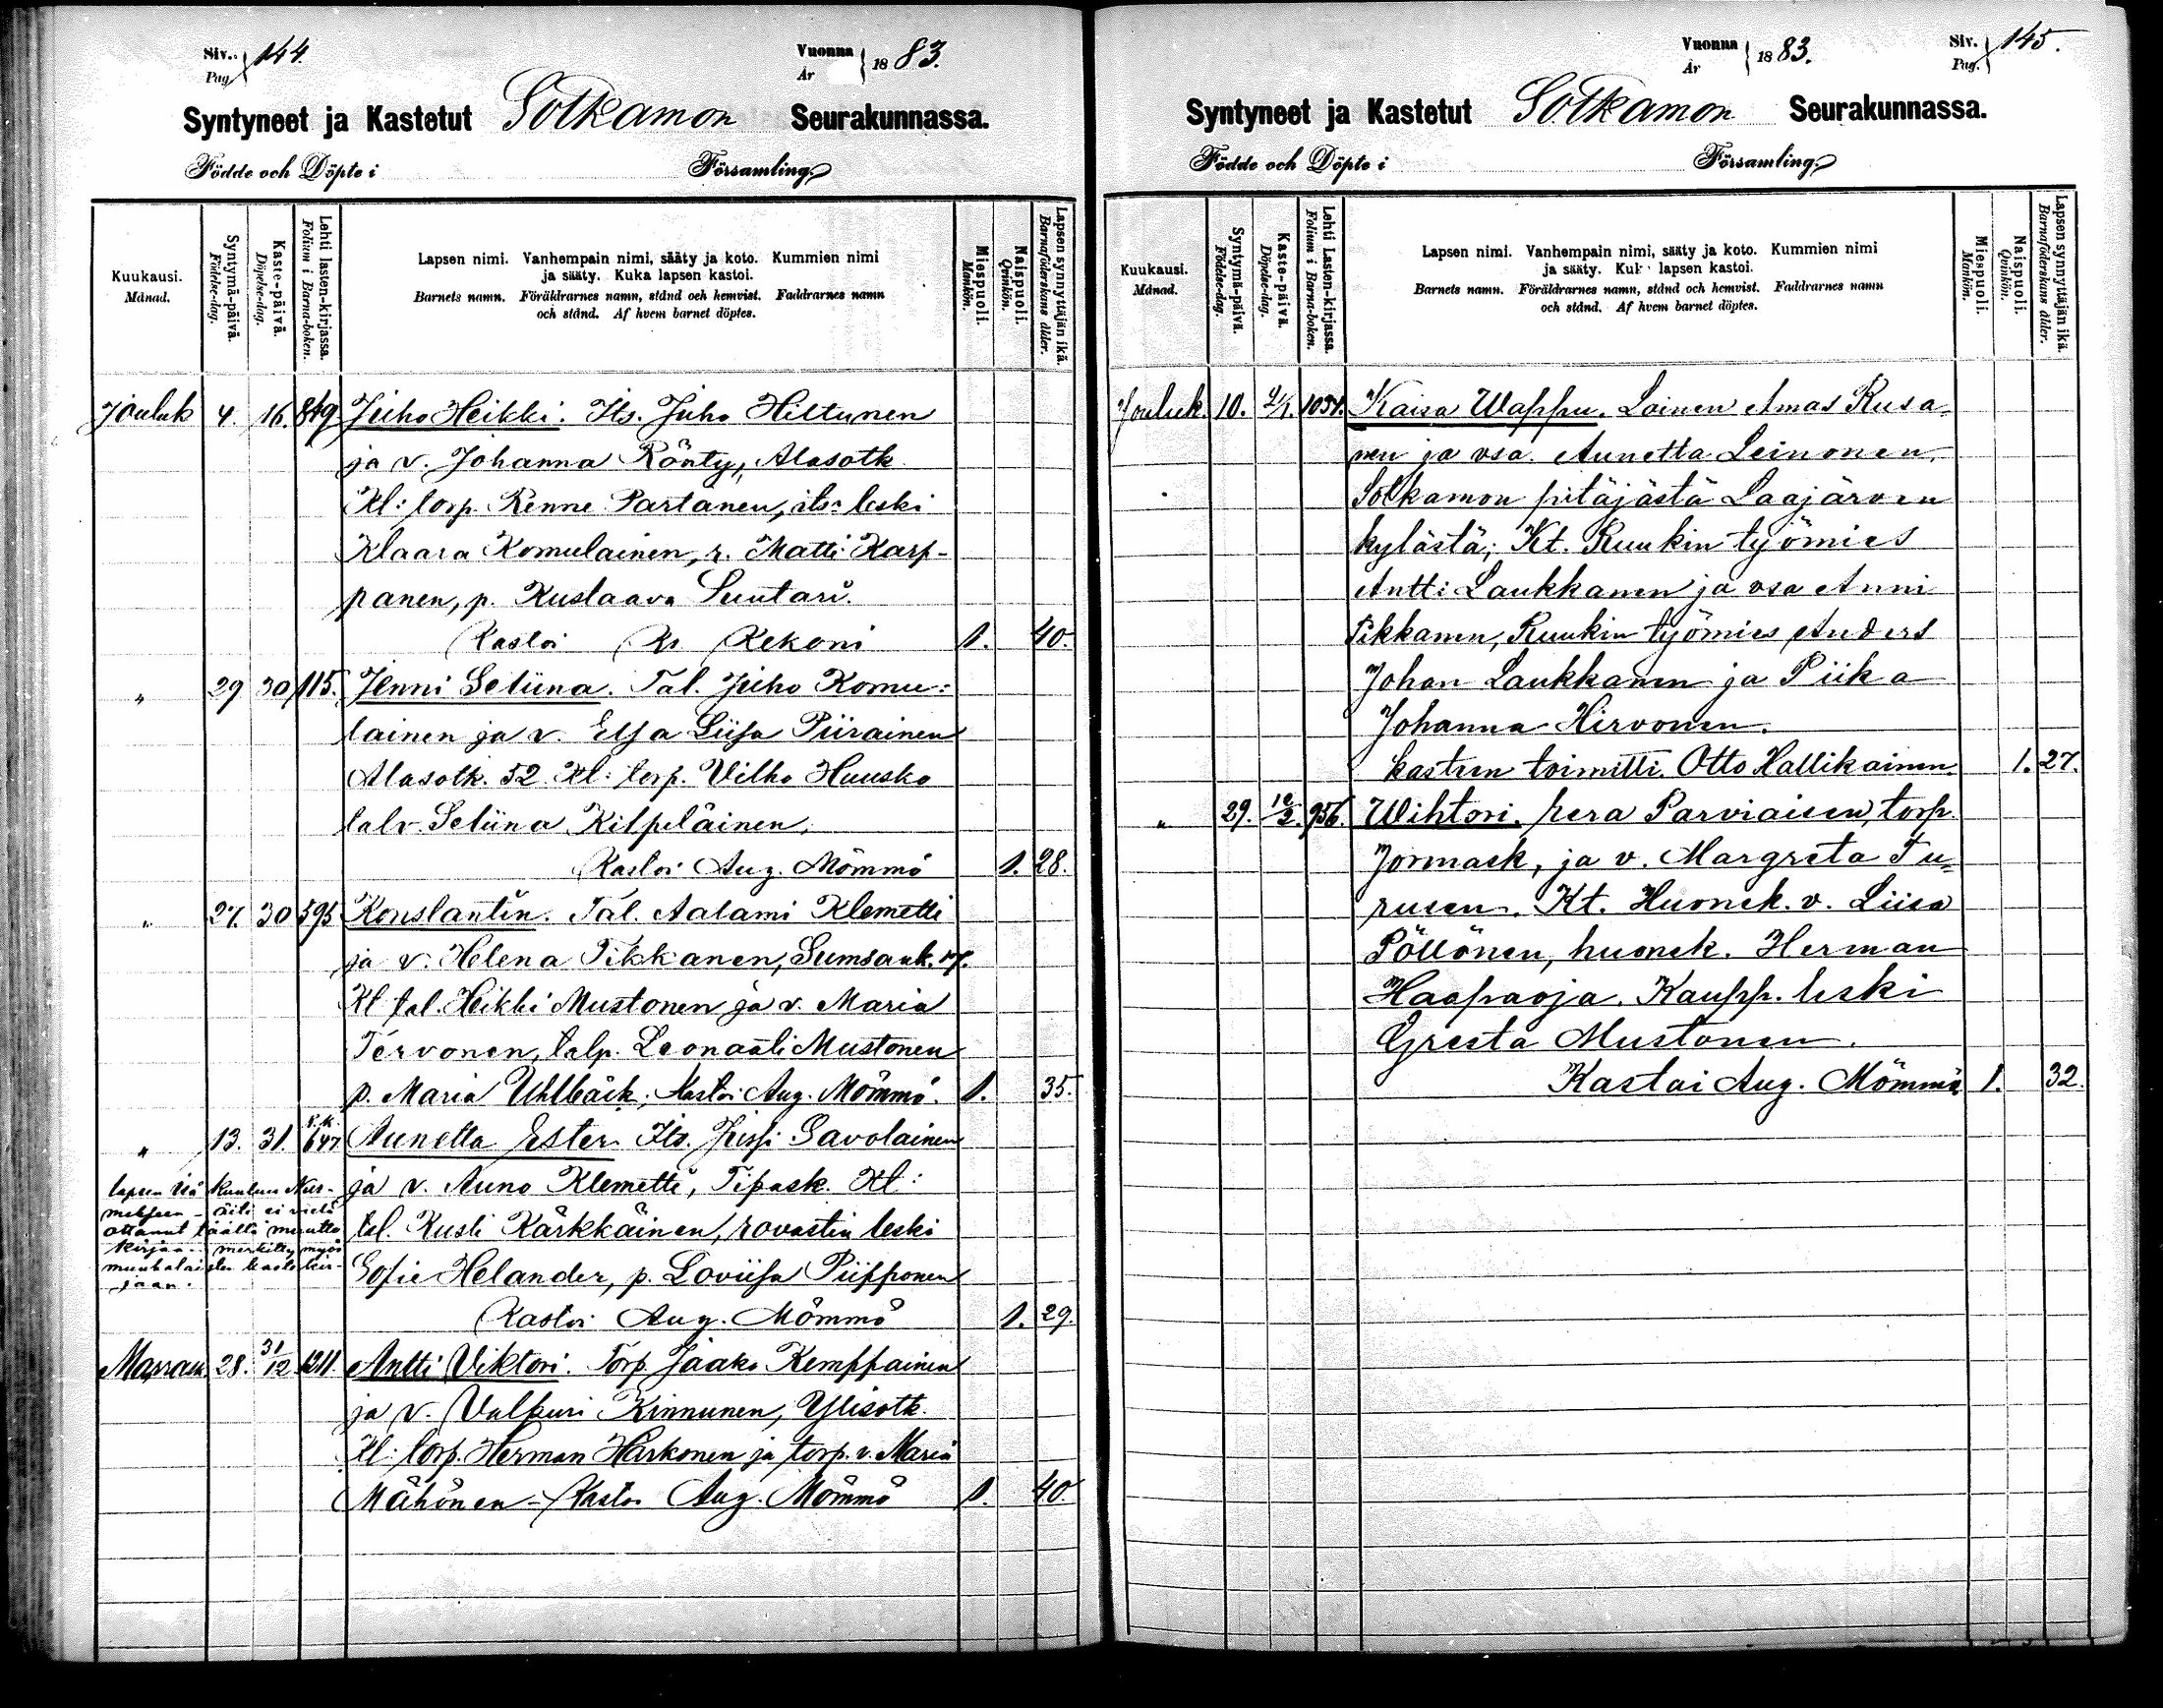 Siv. 144.
Pag.
Vuonna 1883.
År
Syntyneet ja Kastetut Sotkamon Seurakunnassa.
Födde och Döpte i Församling.
Kuukausi. Månad.
Syntymä-päivä. Födelse-dag.
Kaste-päivä. Döpelse-dag.
Lehti lasten-kirjassa. Folium i Barna-boken.
Lapsen nimi. Vanhempain nimi, sääty ja koto. Kummien nimi
ja sääty. Kuka lapsen kastoi.
Barnets namn. Föräldrarnes namn, stånd och hemvist. Faddrarnes namn
och stånd. Af hvem barnet döptes.
Miespuoli. Mankön.
Naispuoli. Qvinkön.
Lapsen synnyttäjän ikä. Barnaföderskans ålder.
Jouluk 4. 16. 849 Juho Heikki. Its. Juho Hiltunen
ja v. Johanna Ränty, Alasotk.
Kt: torp. Renne Partanen, its: leski
Klaara Komulainen, r. Matti Karp-
panen, p. Kustaava Suutari.
Kastoi Rekoni 1. 40.
" 29. 30 115. Jenni Seliina. Tal. Juho Komu:
lainen ja v. Elsa Liisa Piirainen
Alasotk. 52. Kt: torp. Vilho Huusko
talv. Seliina Kilpeläinen,
Kastoi Aug. Mömmö 1. 28.
" 27. 30 595 Konstantin. Tal. Aalami Klemetti
ja v. Helena Tikkanen, Sumsank. 17.
Kt tal. Heikki Mustonen ja v. Maria
Tervonen, talp. Leonaati Mustonen
p. Maria Uhlbäck, Kastoi Aug. Mömmö. 1. 35.
" 13. 31. R.K. 647 Aunetta Ester. Its. Jussi Savolainen
ja v. Auno Klemetti, Tipask. Kt:
tal. Kusti Kärkkäinen, rovastin leski
Sofie Helander, p. Loviisa Piipponen
Kastoi Aug. Mömmö 1. 29.
lapsen isä kuuluu Nur-
mekseen - äiti ei vielä
ottanut täältä muutto
kirjaa - merkitty myös
muukalaisten kastekir-
jaan.
Marrask. 28. 31/12 1211. Antti Viktori. Torp. Jaako Kemppainen
ja v. Valpuri Kinnunen, Ylisotk.
Kt: torp. Herman Härkonen ja torp. v. Maria
Mähönen - Kastoi Aug. Mömmö 1. 40.
Vuonna 1883.
År
Siv. 145.
Pag.
Syntyneet ja Kastetut Sotkamon Seurakunnassa.
Födde och Döpte i Församling.
Kuukausi. Månad.
Syntymä-päivä. Födelse-dag.
Kaste-päivä. Döpelse-dag.
Lehti Lasten-kirjassa. Folium i Barna-boken.
Lapsen nimi. Vanhempain nimi, sääty ja koto. Kummien nimi
ja sääty. Kuk lapsen kastoi.
Barnets namn. Föräldrarnes namn, stånd och hemvist. Faddrarnes namn
och stånd. Af hvem barnet döptes.
Miespuoli. Mankön.
Naispuoli. Qvinkön.
Lapsen synnyttäjän ikä. Barnaföderskans ålder.
Jouluk. 10. 2/1. Kaisa Wappu. Loinen Amas Rusa-
nen ja vsa. Aunetta Leinonen,
Sotkamon pitäjästä Laajärven
kylästä; Kt. Ruukin työmies
Antti Laukkanen ja vsa Anni
Tikkanen, Ruukin työmies Anders
Johan Laukkanen ja Piika
Johanna Hirvonen.
kasteen toimitti Otto Hallikainen. 1. 27.
" 29. 956. Wihtori. pera Parviaisen, torp.
Jormask, ja v. Margreta Tu-
rusen. Kt. Huonek. v. Liisa
Pöllönen, huonek. Herman
Haapaoja. Kaupp. leski
Greeta Mustonen.
Kastoi Aug. Mömmö. 1. 32.